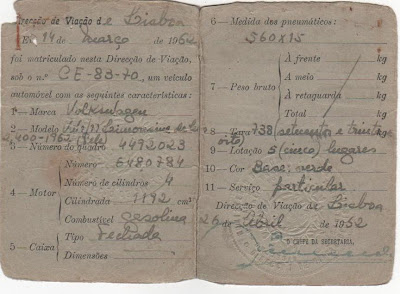 Direcção de Viação de Lisboa
Em 14 de março de 1962
foi matriculado nesta Direcção de Viação,
sob o n.º CE-83-70, um veículo
automóvel com as seguintes características:
1 — Marca Volkswagen
2 — Modelo
400-1962
3 — Número do quadro 4492023
4 — Motor
Número 6480784
Número de cilindros 4
Cilindrada 1192 cm³
Combustível gasolina
5 — Caixa
Tipo Fechada
Dimensões
6 — Medida dos pneumáticos:
560X15
7 — Peso bruto
À frente kg
A meio kg
À retaguarda kg
Total kg
8 — Tara 738 (setecentos e trinta e
oito)
9 — Lotação 5 (cinco) lugares
10 — Cor Base: verde
11 — Serviço particular
Direcção de Viação de Lisboa
26 de Abril de 1962
O CHEFE DA SECRETARIA,